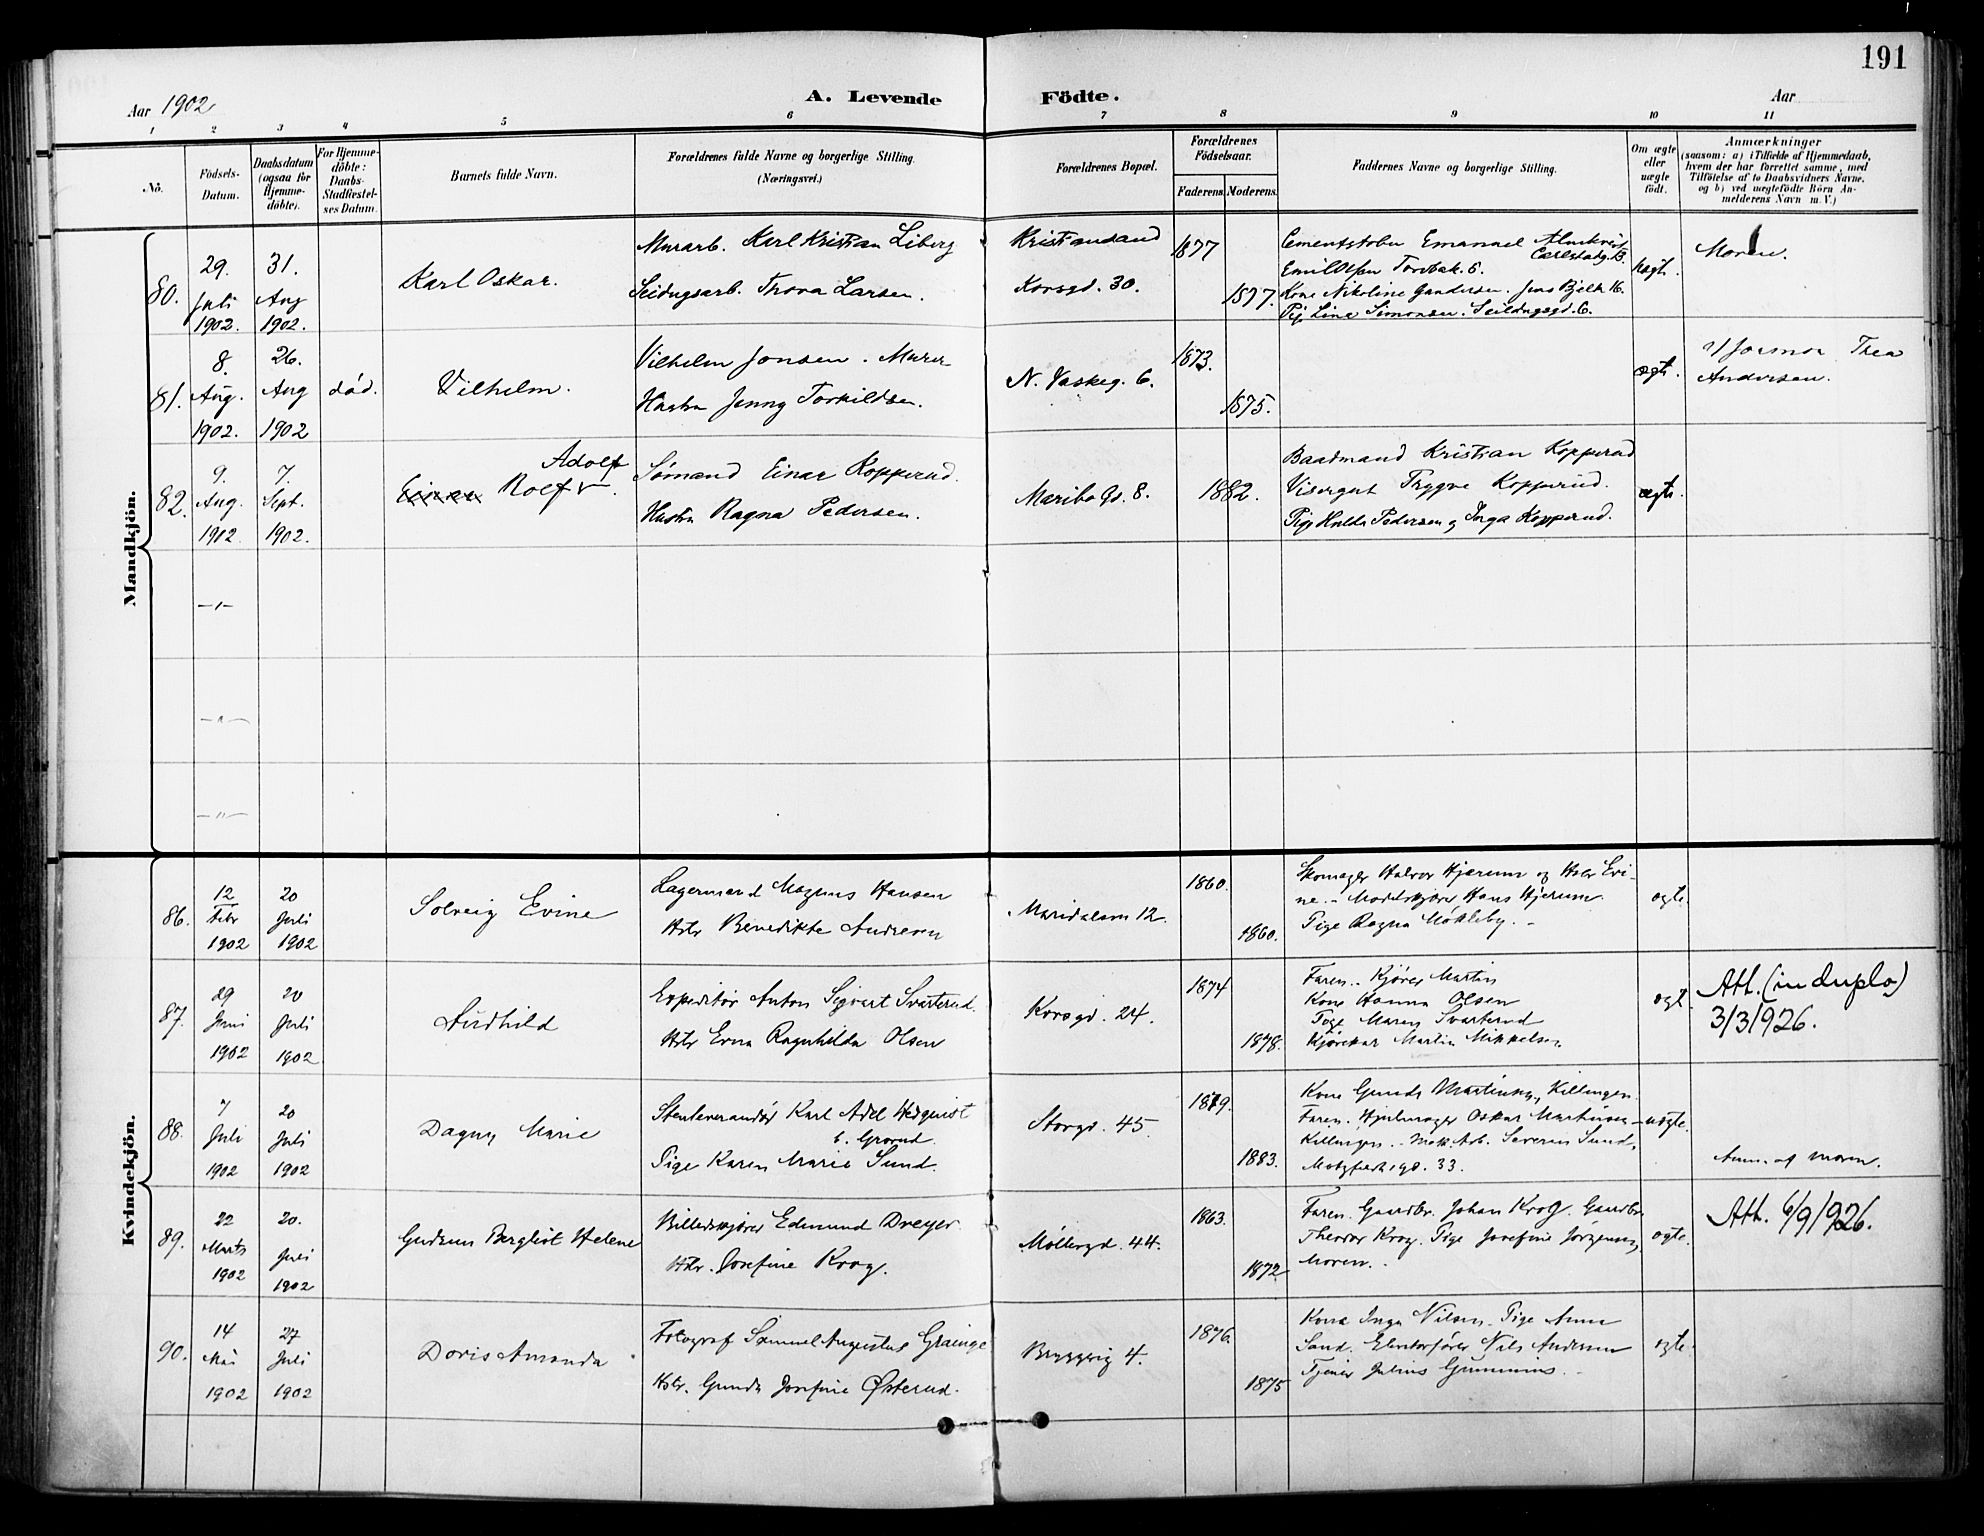 191
Aar 1902
A. Levende Födte.
Aar
1 2 3 4 5 6 7 8 9 10 11
No.
Födsels-Datum.
Daabsdatum (ogsaa for Hjemme-döbte).
For Hjemme-döbte: Daabs-Stadfæstel-ses Datum.
Barnets fulde Navn.
Forældrenes fulde Navne og borgerlige Stilling. (Næringsvei.)
Forældrenes Bopæl.
Forældrenes Födselsaar.
Faderens. Moderens.
Faddernes Navne og borgerlige Stilling.
Om ægte eller uægte födt.
Anmærkninger
(saasom: a) i Tilfælde af Hjemmedaab,
hvem der har forrettet samme, med
Tilföielse af to Daabsvidners Navne,
og b) ved uægtefödte Börn An-
melderens Navn m. V.)
Mandkjön.
80.
29. Juli 1902.
31. Aug 1902.
Karl Oskar.
Murarb. Karl Kristian Liberg
Seildugsarb. Thora Larsen.
Kristiansand
Korsgd. 30.
1877
1877.
Cementstøber Emanuel Almkvist
Carlstadg. 13
Emil Olsen Torvbak. 6.
Kone Nikoline Gundersen. Jens Bjelk 16.
Pig. Line Simonsen. Seildugsgd. 6.
uægte.
Moren.
81.
8. Aug. 1902.
26. Aug 1902
død.
Vilhelm.
Vilhelm Jonsen. Murer
Hustru Jenny Torkildsen.
N. Vaskeg. 6.
1873.
1875.
ægte.
Jformor Thea
Andersen.
82.
9. Aug. 1902.
7. Sept. 1902.
Adolf
Einar Rolf
Sømand Einar Kopperud.
Hustru Ragna Pedersen.
Maribo Gd. 8.
1882.
Baadmand Kristian Kopperud
Visergut Trygve Kopperud.
Pige Hulda Pedersen og Inga Kopperud.
ægte.
—"—
—"—
—"—
Kvindekjön.
86.
12 Febr 1902
20 Juli 1902
Solveig Evine
Lagermand Magnus Hansen
Hstr Benedikte Andresen
Maridalsvn 12.
1860.
1860.
Skomager Halvor Hjerum og Hstr Evi-
ne. - Hans Hjerum
Pige Ragna Møkleby. -
ægte
87.
29 Juni 1902
20 Juli 1902
Audhild
Expeditør Anton Sigvart Svarterud.
Hstr Evna Ragnhilda Olsen
Korsgd. 24.
1874
1878.
Faren. Kjører Martin
Kone Hanna Olsen
Pige Maren Svarterud
Kjørekar Martin Mikkelsen
ægte.
Att. (in duplo)
3/3 1926.
88.
7 Juli 1902
20 Juli 1902
Dagny Marie
Stenleverandør Karl Adel Hedquist
b. Grorud.
Pige Karen Marie Sund.
Storgd. 45.
1879.
1883.
Kone Gunda Martinsen, Killingen.
Faren. Hjulmager Oskar Martinsen
Killingen. - Mek. Arb. Severin Sund,
Motzfeldtsgd. 33.
uægte.
Anm. af moren.
89.
22 Marts 1902
20. Juli 1902
Gudrun Bergliot Helene
Billedskjærer Edmund Dreyer.
Hstr. Josefine Krog.
Møllergd. 44.
1863.
1872.
Faren. Gaardbr. Johan Krog. Gaardbr.
Theodor Krog. Pige Josefine Jørgensen,
Moren. -
ægte.
Att. 6/9 1926.
90.
14 Mai 1902
27 Juli 1902
Doris Amanda
Fotograf Samuel Augustus Grainge
Hstr. Gunda Josefine Østerud.
Bryggerig 4.
1876.
1875
Kone Inga Nilsen. Pige Anna
Sand. Nils Andersen
Tjener Julius Gummius. -
ægte.